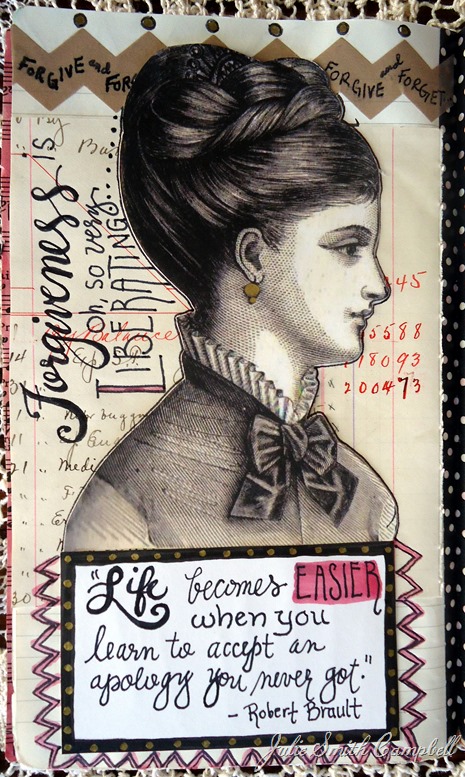 FORGIVE and FORG
FORGIVE and FORGET
Forgiveness is
oh, so very
LIBERATING.....
45
5588
18093
200473
14
21
30
"Life becomes EASIER
when you
learn to accept an
apology you never got."
- Robert Brault
Julie Smith Campbell